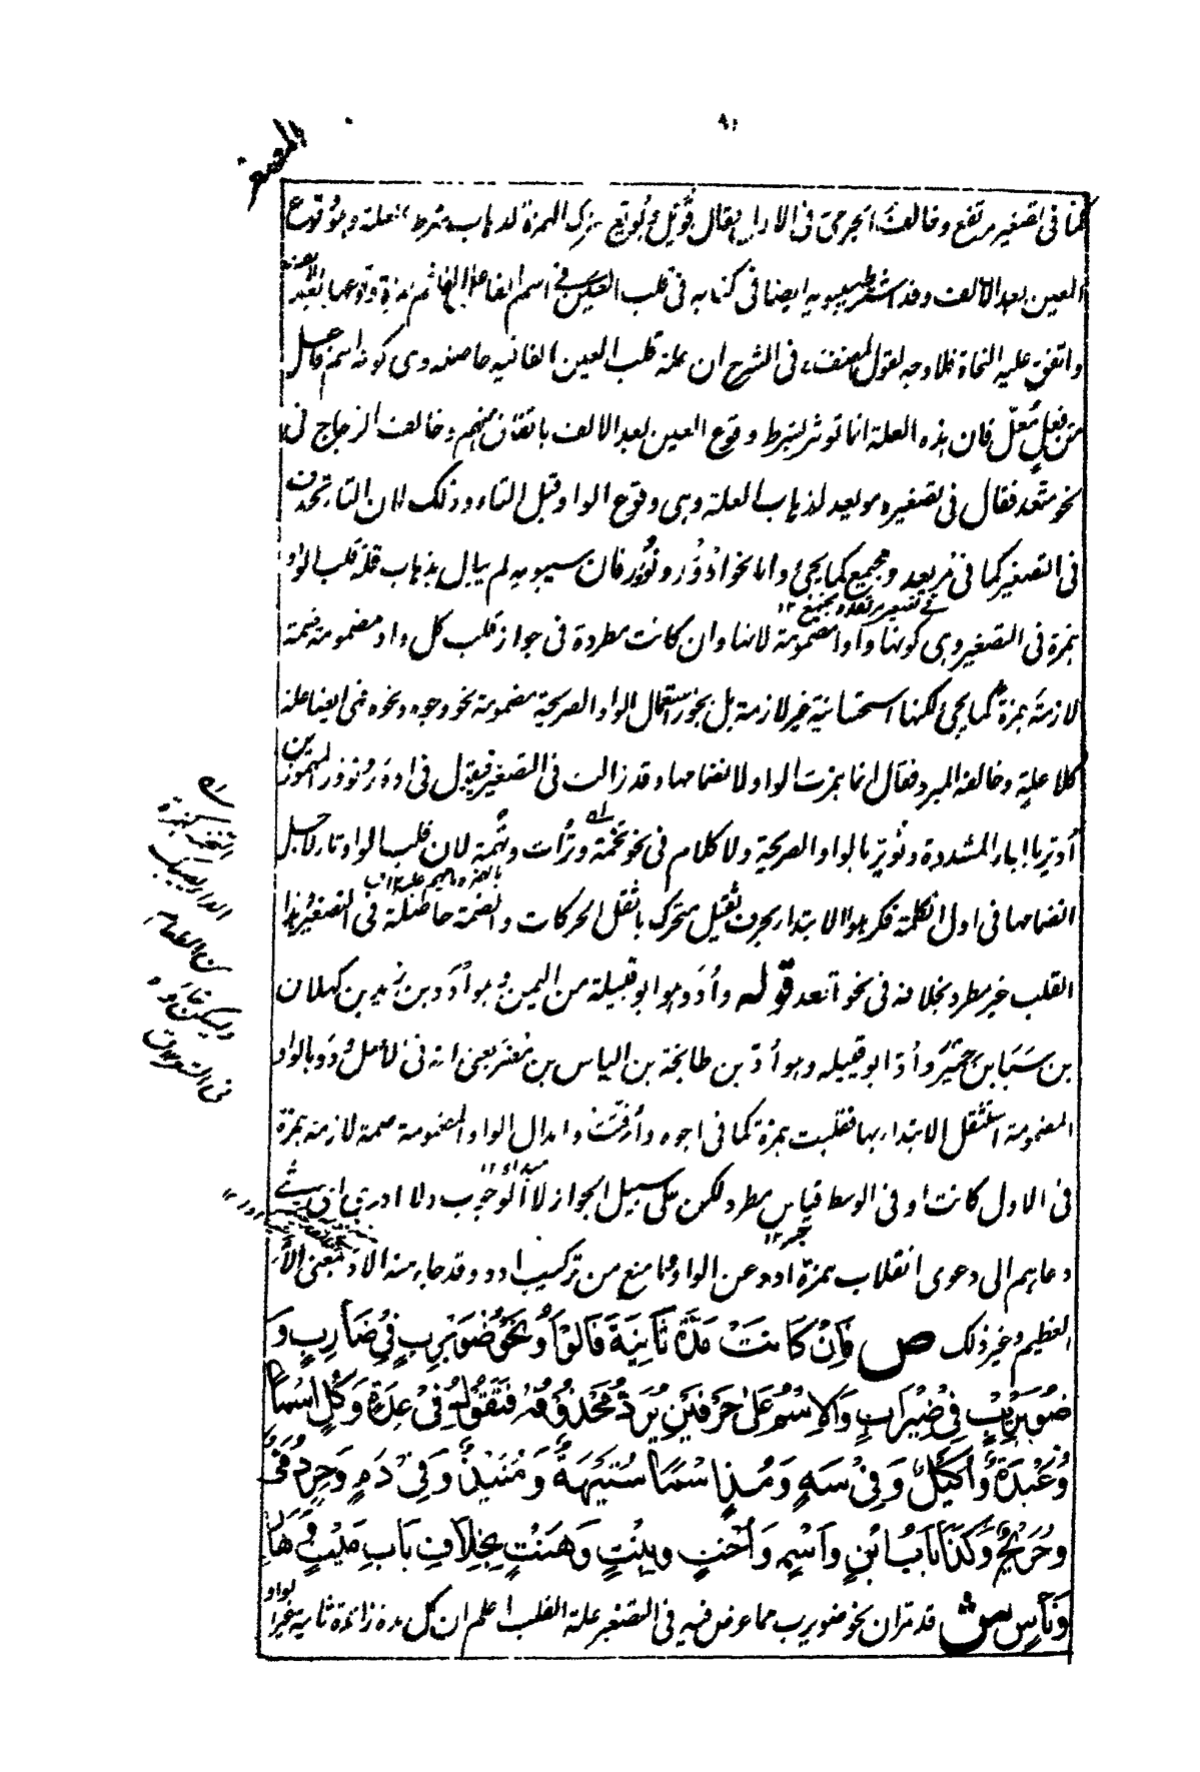 ٩١
المصغر
كما فى تصغير مرتفع وخالف الجرمى فى الاول يقال قُوَيْل وبُوَيع بترك الهمزة لذهاب شرط العلة وهو وقوع
العين بعد الالف وقد اشترط سيبويه ايضا فى كتابه فى قلب العين فى اسم الفاعل وقوعها بعد الالف
واتفق عليه النحاة فلا وجه لقول المصنف فى الشرح ان علة قلب العين الفا فيه حاصلة وهى كونه اسم فاعل
من فعل مُعَلّ فان هذه العلة انما تؤثر بشرط وقوع العين بعد الالف باتفاق منهم وخالف الزجاج فى
نحو متعد فقال فى تصغيره مويعد لذهاب العلة وهى وقوع الواو قبل التاء وذلك لان التاء تحذف
فى التصغير كما فى مريعد ومجيمع كما يجئ واما نحو ادؤر ونؤور فان سيبويه لم يبال بذهاب علة قلب الواو
همزة فى التصغير وهى كونها واوا مضمومة لانها وان كانت مطردة فى جواز قلب كل واو مضمومة ضمة
لازمة همزة كما يجئ لكنها استحسانية غير لازمة بل يجوز استعمال الواو الصريحة مضمومة نحو وجوه ونحوه فهى ايضا علة
كلا علة وخالفه المبرد فقال انما همزت الواو لانضمامها وقد زالت فى التصغير فيقول فى ادؤر ونؤور المهموزين
أُدَيّر بالياء المشددة ونُوَيّر بالواو الصريحة ولا كلام فى نحو تخمة وتراث وتهمة لان قلب الواو تاء لاجل
انضمامها فى اول الكلمة فكرهوا الابتداء بحرف ثقيل متحرك باثقل الحركات والضمة حاصلة فى التصغير وهذا
القلب غير مطرد بخلافه فى نحو اتعد قوله وأُدَد وهو ابو قبيلة من اليمن وهو أُدَد بن زيد بن كهلان
بن سَبَا بن حمير وأُدّ ابو قبيله وهو أُدّ بن طابخة بن الياس بن مضر يعنى انه فى الاصل وُدَد بالواو
المضمومة استثقل الابتداء بها فقلبت همزة كما فى اجوه وأُقّتت وابدال الواو المضمومة ضمة لازمة همزة
فى الاول كانت او فى الوسط قياس مطرد لكن على سبيل الجواز لا الوجوب ولا ادرى اى شئ
دعاهم الى دعوى انقلاب همزة ادد عن الواو وما منع من تركيب ادد وقد جاء منه الاد بمعنى الامر
العظيم وغير ذلك ص فَاِنْ كَانَتْ مَدَّةً ثَانِيَةً فَالْوَاوُ نَحْوُ ضُوَيْرِبٍ فِيْ ضَارِبٍ وَ
ضُوَيْرِيْبٍ فِيْ ضِيْرَابٍ وَالْاِسْمُ عَلٰى حَرْفَيْنِ يُرَدُّ مَحْذُوْفُهٗ فَتَقُوْلُ فِيْ عِدَةٍ وَكُلْ اسْمًا
وُعَيْدَةٌ وَأُكَيْلٌ وَفِيْ سَهٍ وَمُذْ اسْمًا سُتَيْهَةٌ وَمُنَيْذٌ وَفِيْ دَمٍ وَحِرٍ دُمَيٌّ
وَحُرَيْحٌ وَكَذَا بَابُ ابْنٍ وَاسْمٍ وَأُخْتٍ وَبِنْتٍ وَهَنْتٍ بِخِلَافِ بَابِ مَيْتٍ وَهَارٍ
وَنَاسٍ ش قد مر ان نحو ضويرب مما عرض فيه فى التصغير علة القلب اعلم ان كل مدة زائدة ثانية غير الواو